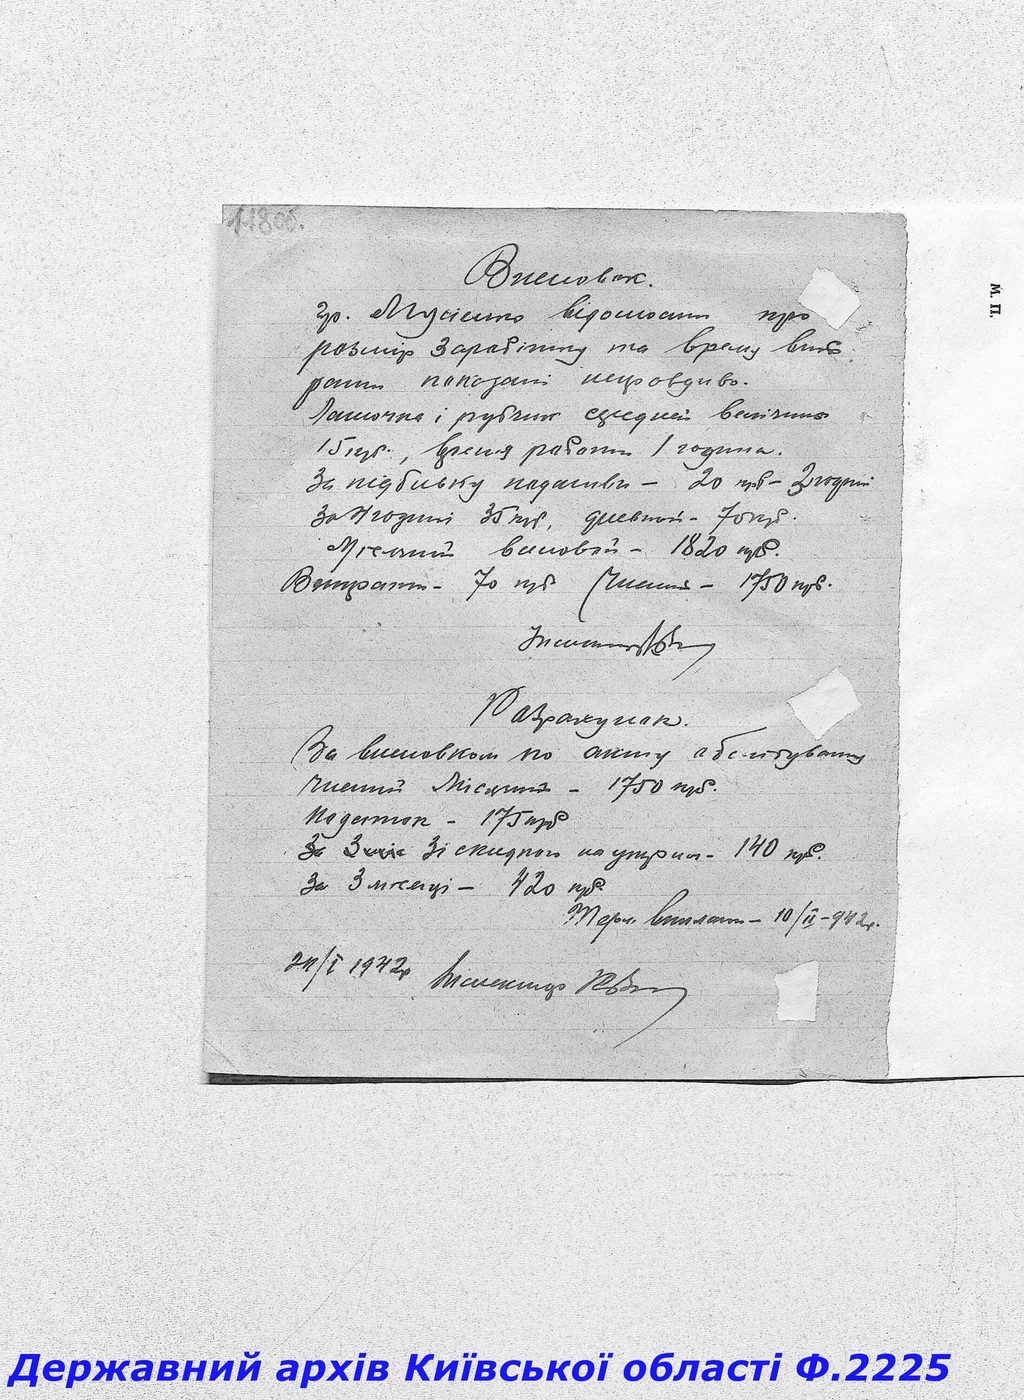 118об.
Висновок.
гр. Мусієнко відомости про
розмір заробітку та время виб
рати показані неправдиво.
Латочка і рубчик средней величины
15 руб., время работи 1 година.
За підбивку подошви – 20 руб – 3 години
За 4 години 35 руб, дневной – 70 руб.
Місячний валовой – 1820 руб.
Витрати – 70 руб Чистий – 1750 руб.
Розрахунок.
За висновком по акту обслідування
Чистий місячний – 1750 руб.
Податок – 175 руб
Зі скидкою на утрим – 140 руб.
За 3 місяці – 420 руб.
Терм виплати – 10/II – 942 р.
24/I 1942р Інспектор
М. П.
Державний архів Київської області Ф.2225